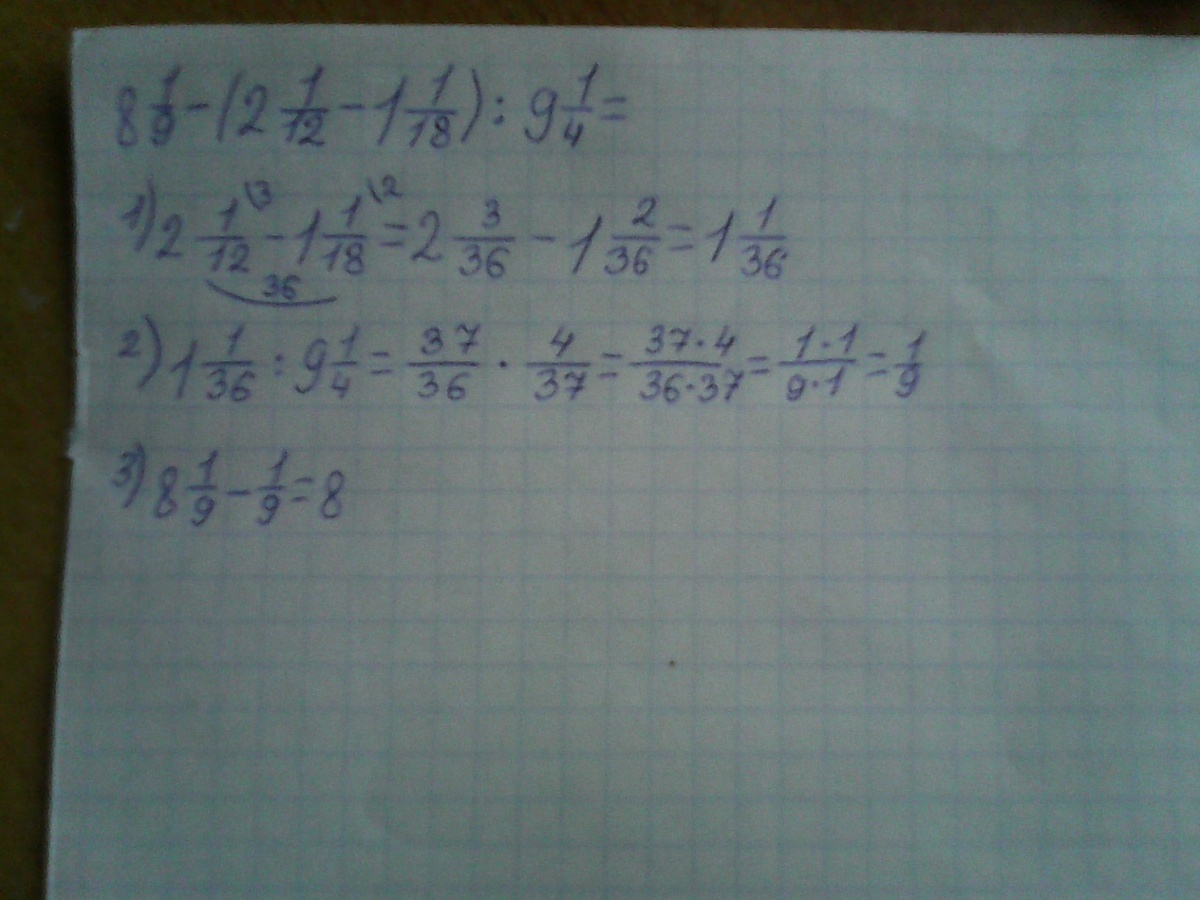 8 1/9 - (2 1/12 - 1 1/18) : 9 1/4 =
1) 2 1/12 \3 - 1 1/18 \2 = 2 3/36 - 1 2/36 = 1 1/36
36
2) 1 1/36 : 9 1/4 = 37/36 · 4/37 = 37·4/36·37 = 1·1/9·1 = 1/9
3) 8 1/9 - 1/9 = 8